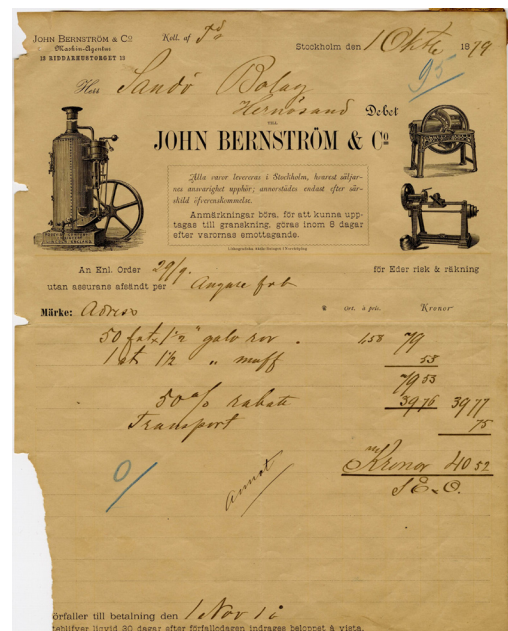 JOHN BERNSTRÖM & Co
Maskin-Agentur
18 RIDDARHUSTORGET 18
Koll. af
Stockholm den 1 Oktb 1879
95
Herr Sandö Bolag
Hernösand Debet
TILL
JOHN BERNSTRÖM & Co
Alla varor levereras i Stockholm, hvarest säljar-
nes ansvarighet upphör; annorstädes endast efter sär-
skild öfverenskommelse.
Anmärkningar böra, för att kunna upp-
tagas till granskning, göras inom 8 dagar
efter varornas emottagande.
An Enl. Order 29/9. för Eder risk & räkning
utan assurans afsändt per Ångare
Märke: Adress Ort. à pris. Kronor
50 fot 1 1/2 " galv rör . 1,58 79
1 st 1 1/2 " muff 53
79 53
50 % rabatt 39 76 39 77
Transport 75
Kronor 40 52
S.E. & O.
annot
0/
örfaller till betalning den 1 Nov
teblifver liqvid 30 dagar efter förfallodagen indrages beloppet à vista.